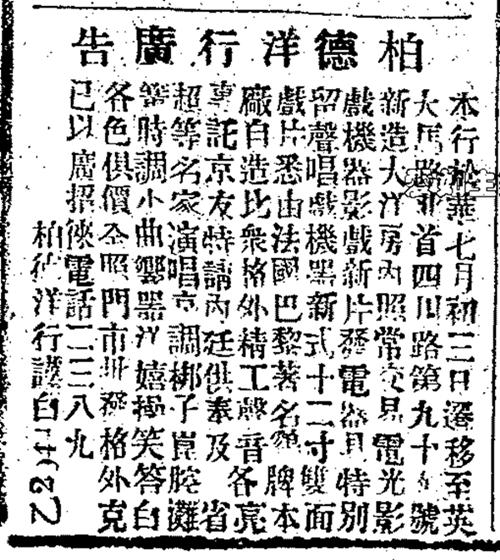 柏德洋行廣告
本行於華七月初日遷移至英
大馬路北首四川路第九十五號
新造大洋房內照常交易電光影
戲機器影戲新片發電器具特別
留聲唱戲機器新式十二寸雙面
戲片悉由法國巴黎著名牌本
廠自造比衆格外精工聲音各亮
專託京友特請內廷供奉及省
超等名家演唱京調梆子崑腔灘
簧時調小曲響器洋嬉操笑答白
各色俱價仝照門市批發格外克
已以廣招徠電話二三八九
柏德洋行謹白